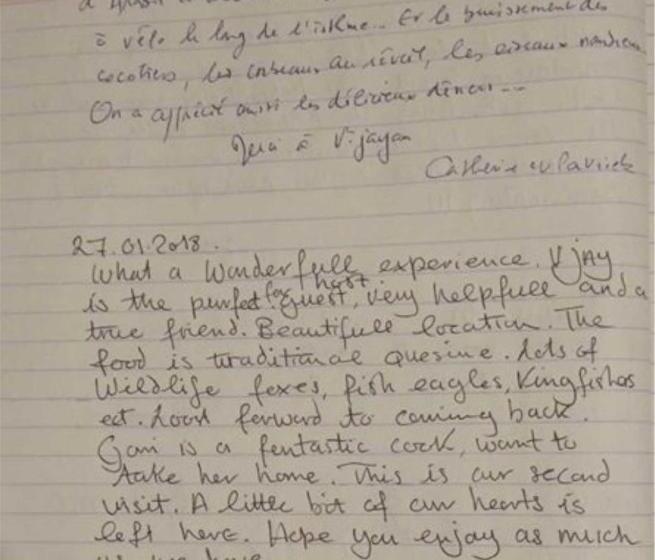 à vélo le long de l'isthme... Et le bruissement des
cocotiers, les corbeaux au réveil, les oiseaux
On a apprécié aussi les délicieux dîners...
Merci à Vijayan
Catherine
27.01.2018.
What a Wonderfull experience. Vjay
is the purfect for guest, host very helpfull and a
true friend. Beautifull location. The
food is traditional quesine. Lots of
Wildlife foxes, fish eagles, Kingfishas
ect. Look forward to coming back.
is a fentastic cook, want to
take her home. This is our second
visit. A little bit of our hearts is
left here. Hope you enjoy as much
as we have